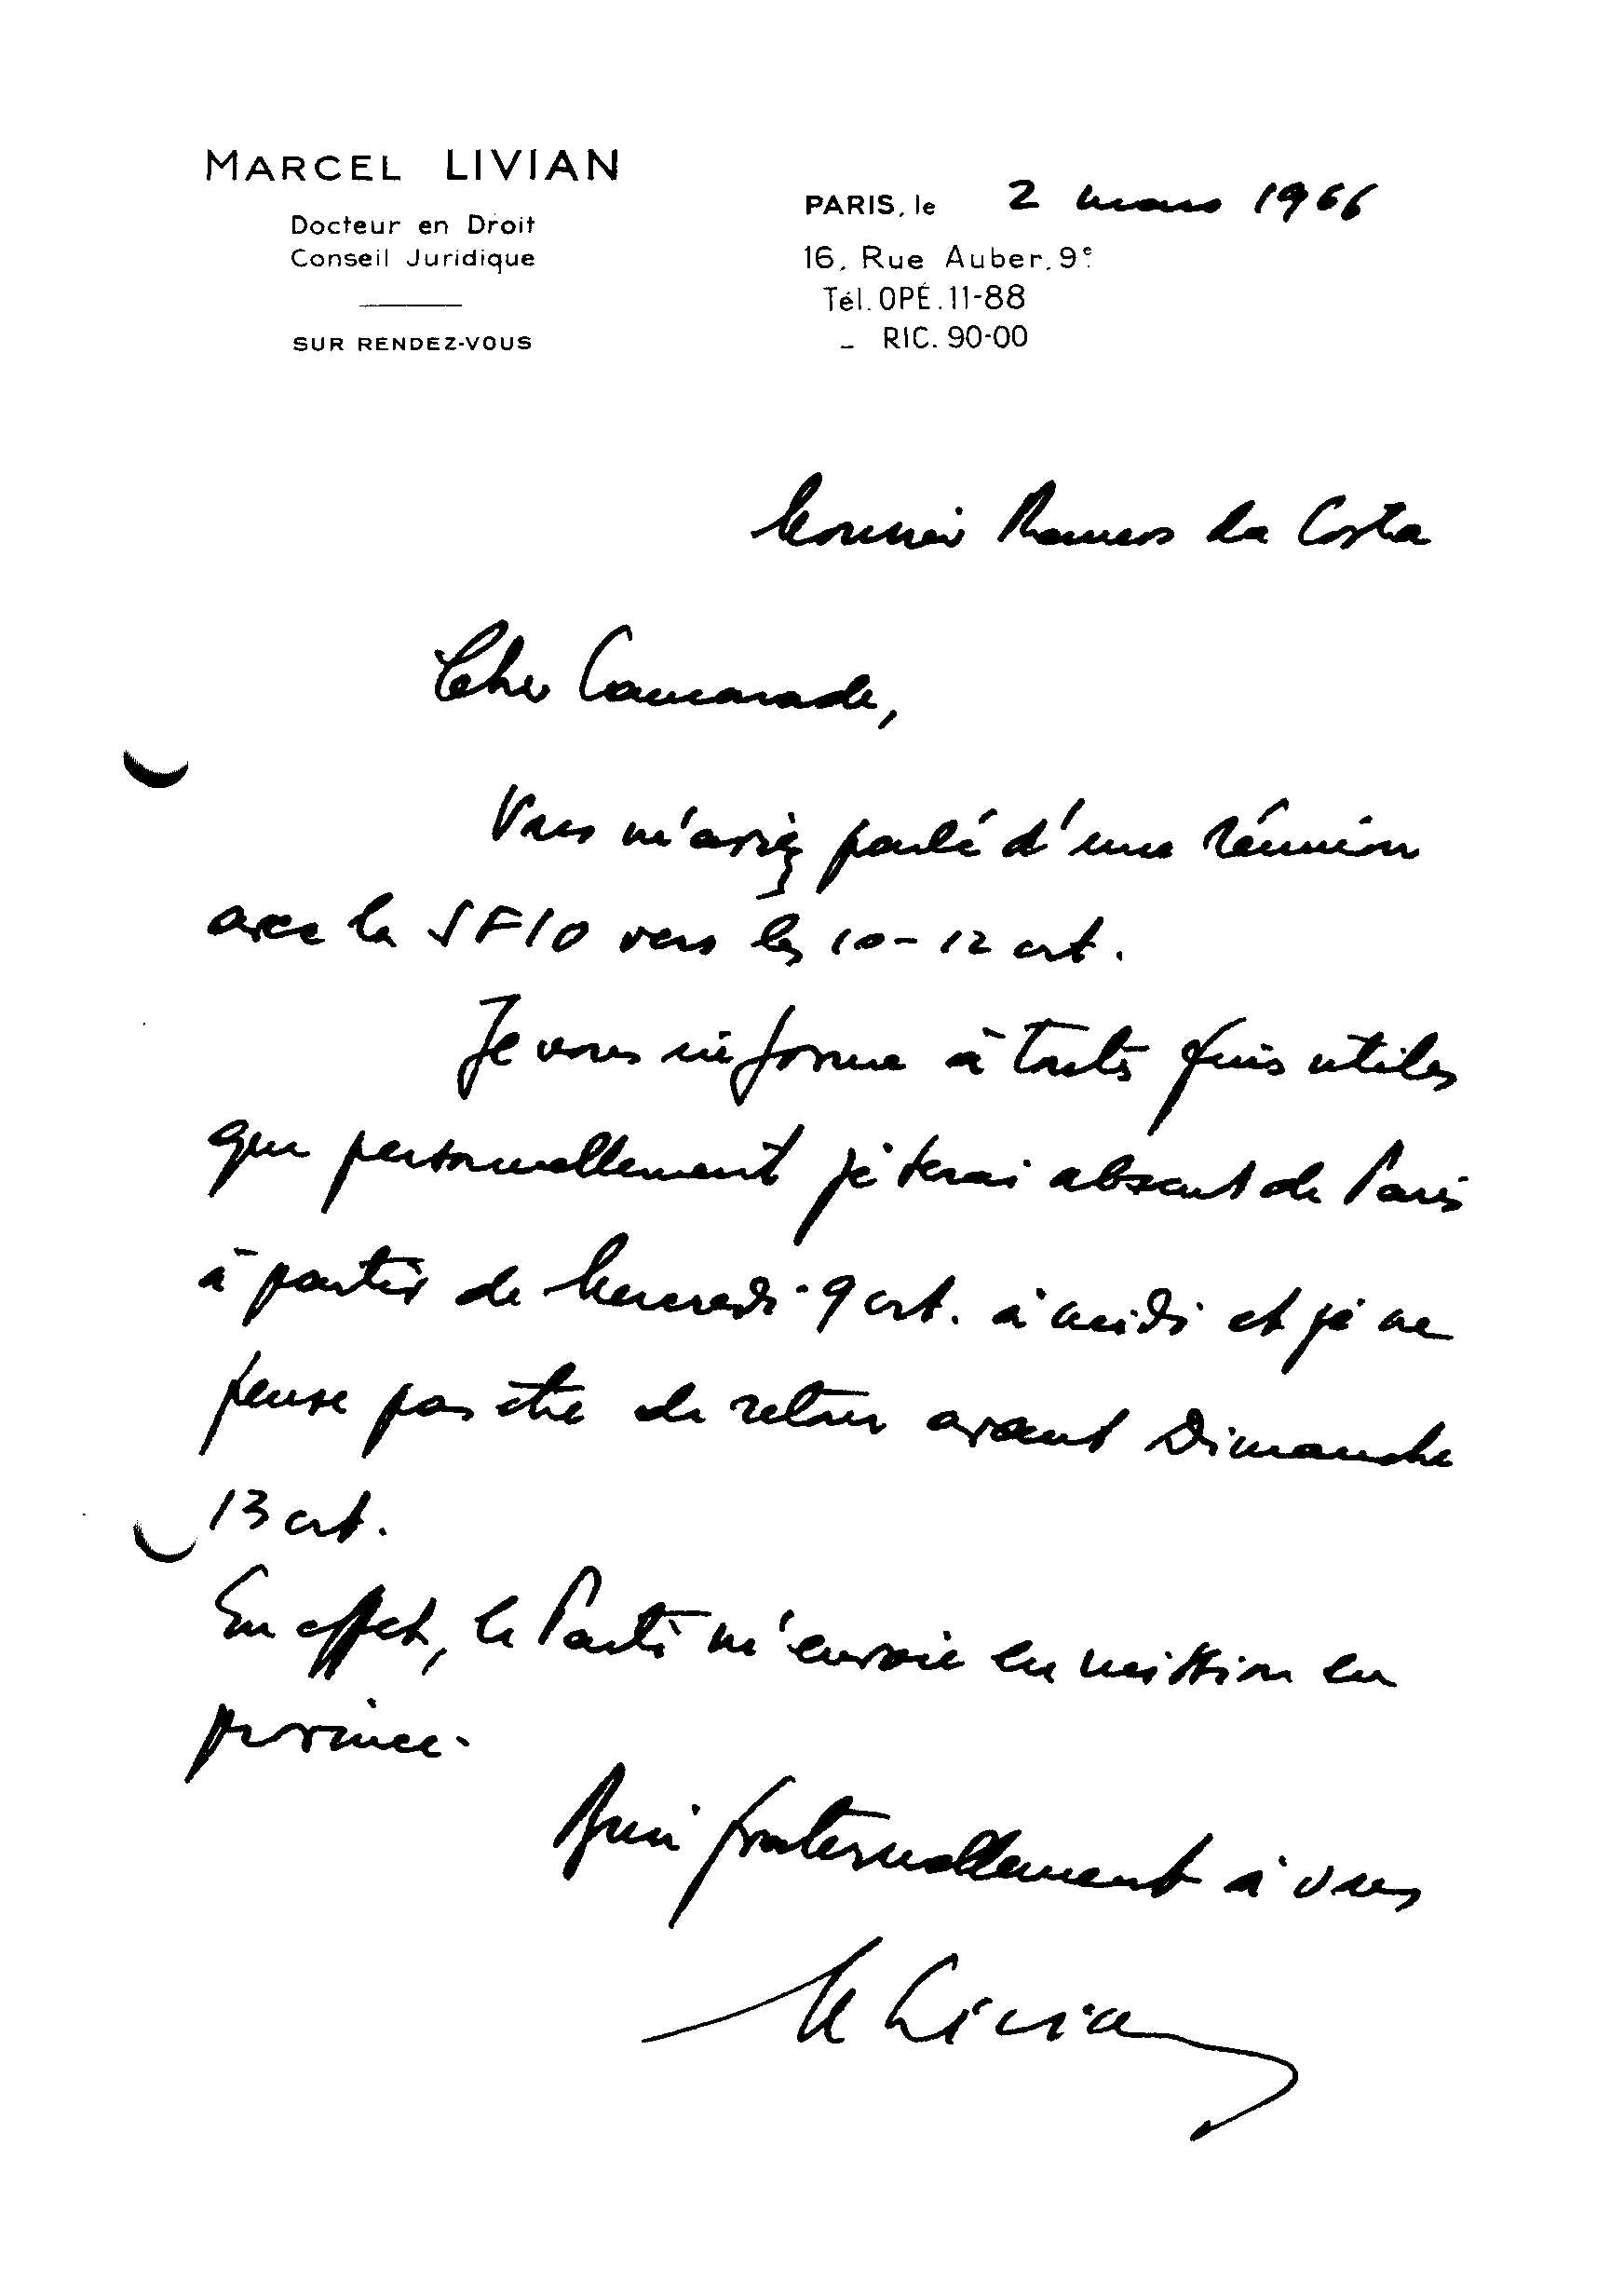 MARCEL LIVIAN
Docteur en Droit
Conseil Juridique
SUR RENDEZ-VOUS
PARIS, le 2 mars 1966
16, Rue Auber, 9e
Tél. OPÉ. 11-88
- RIC. 90-00
Monsieur Ramos da Costa
Cher Camarade,
Vous m'aviez parlé d'une réunion
avec la SFIO vers les 10-12 crt.
Je vous informe à toutes fins utiles
que personnellement je serai absent de Paris
à partir de Mercredi 9 crt. à midi et je ne
pense pas être de retour avant Dimanche
13 crt.
En effet, le Parti m'envoie en mission en
province.
Bien fraternellement à vous
M Livian